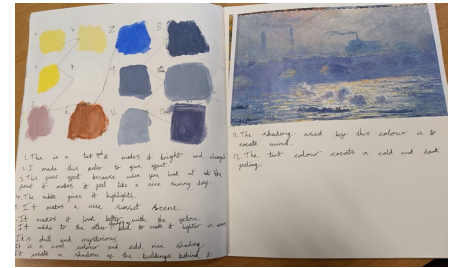 1. This is a tint it makes it bright and
2. I made this paler to give effect.
3. This gives effect because when you look at the
paint it makes it feel like a nice sunny day.
4. The white gives it highlights.
5. It makes a nice sunset scene.
It makes it look better with the yellow.
It adds to the other to make it lighter
It's dull and mysterious.
It is a cool colour and add nice shading.
It create a shadow of the buildings behind it.
11. The shading used by this colour is to
create wind.
12. The tint colour creates a cold and dark
feeling.